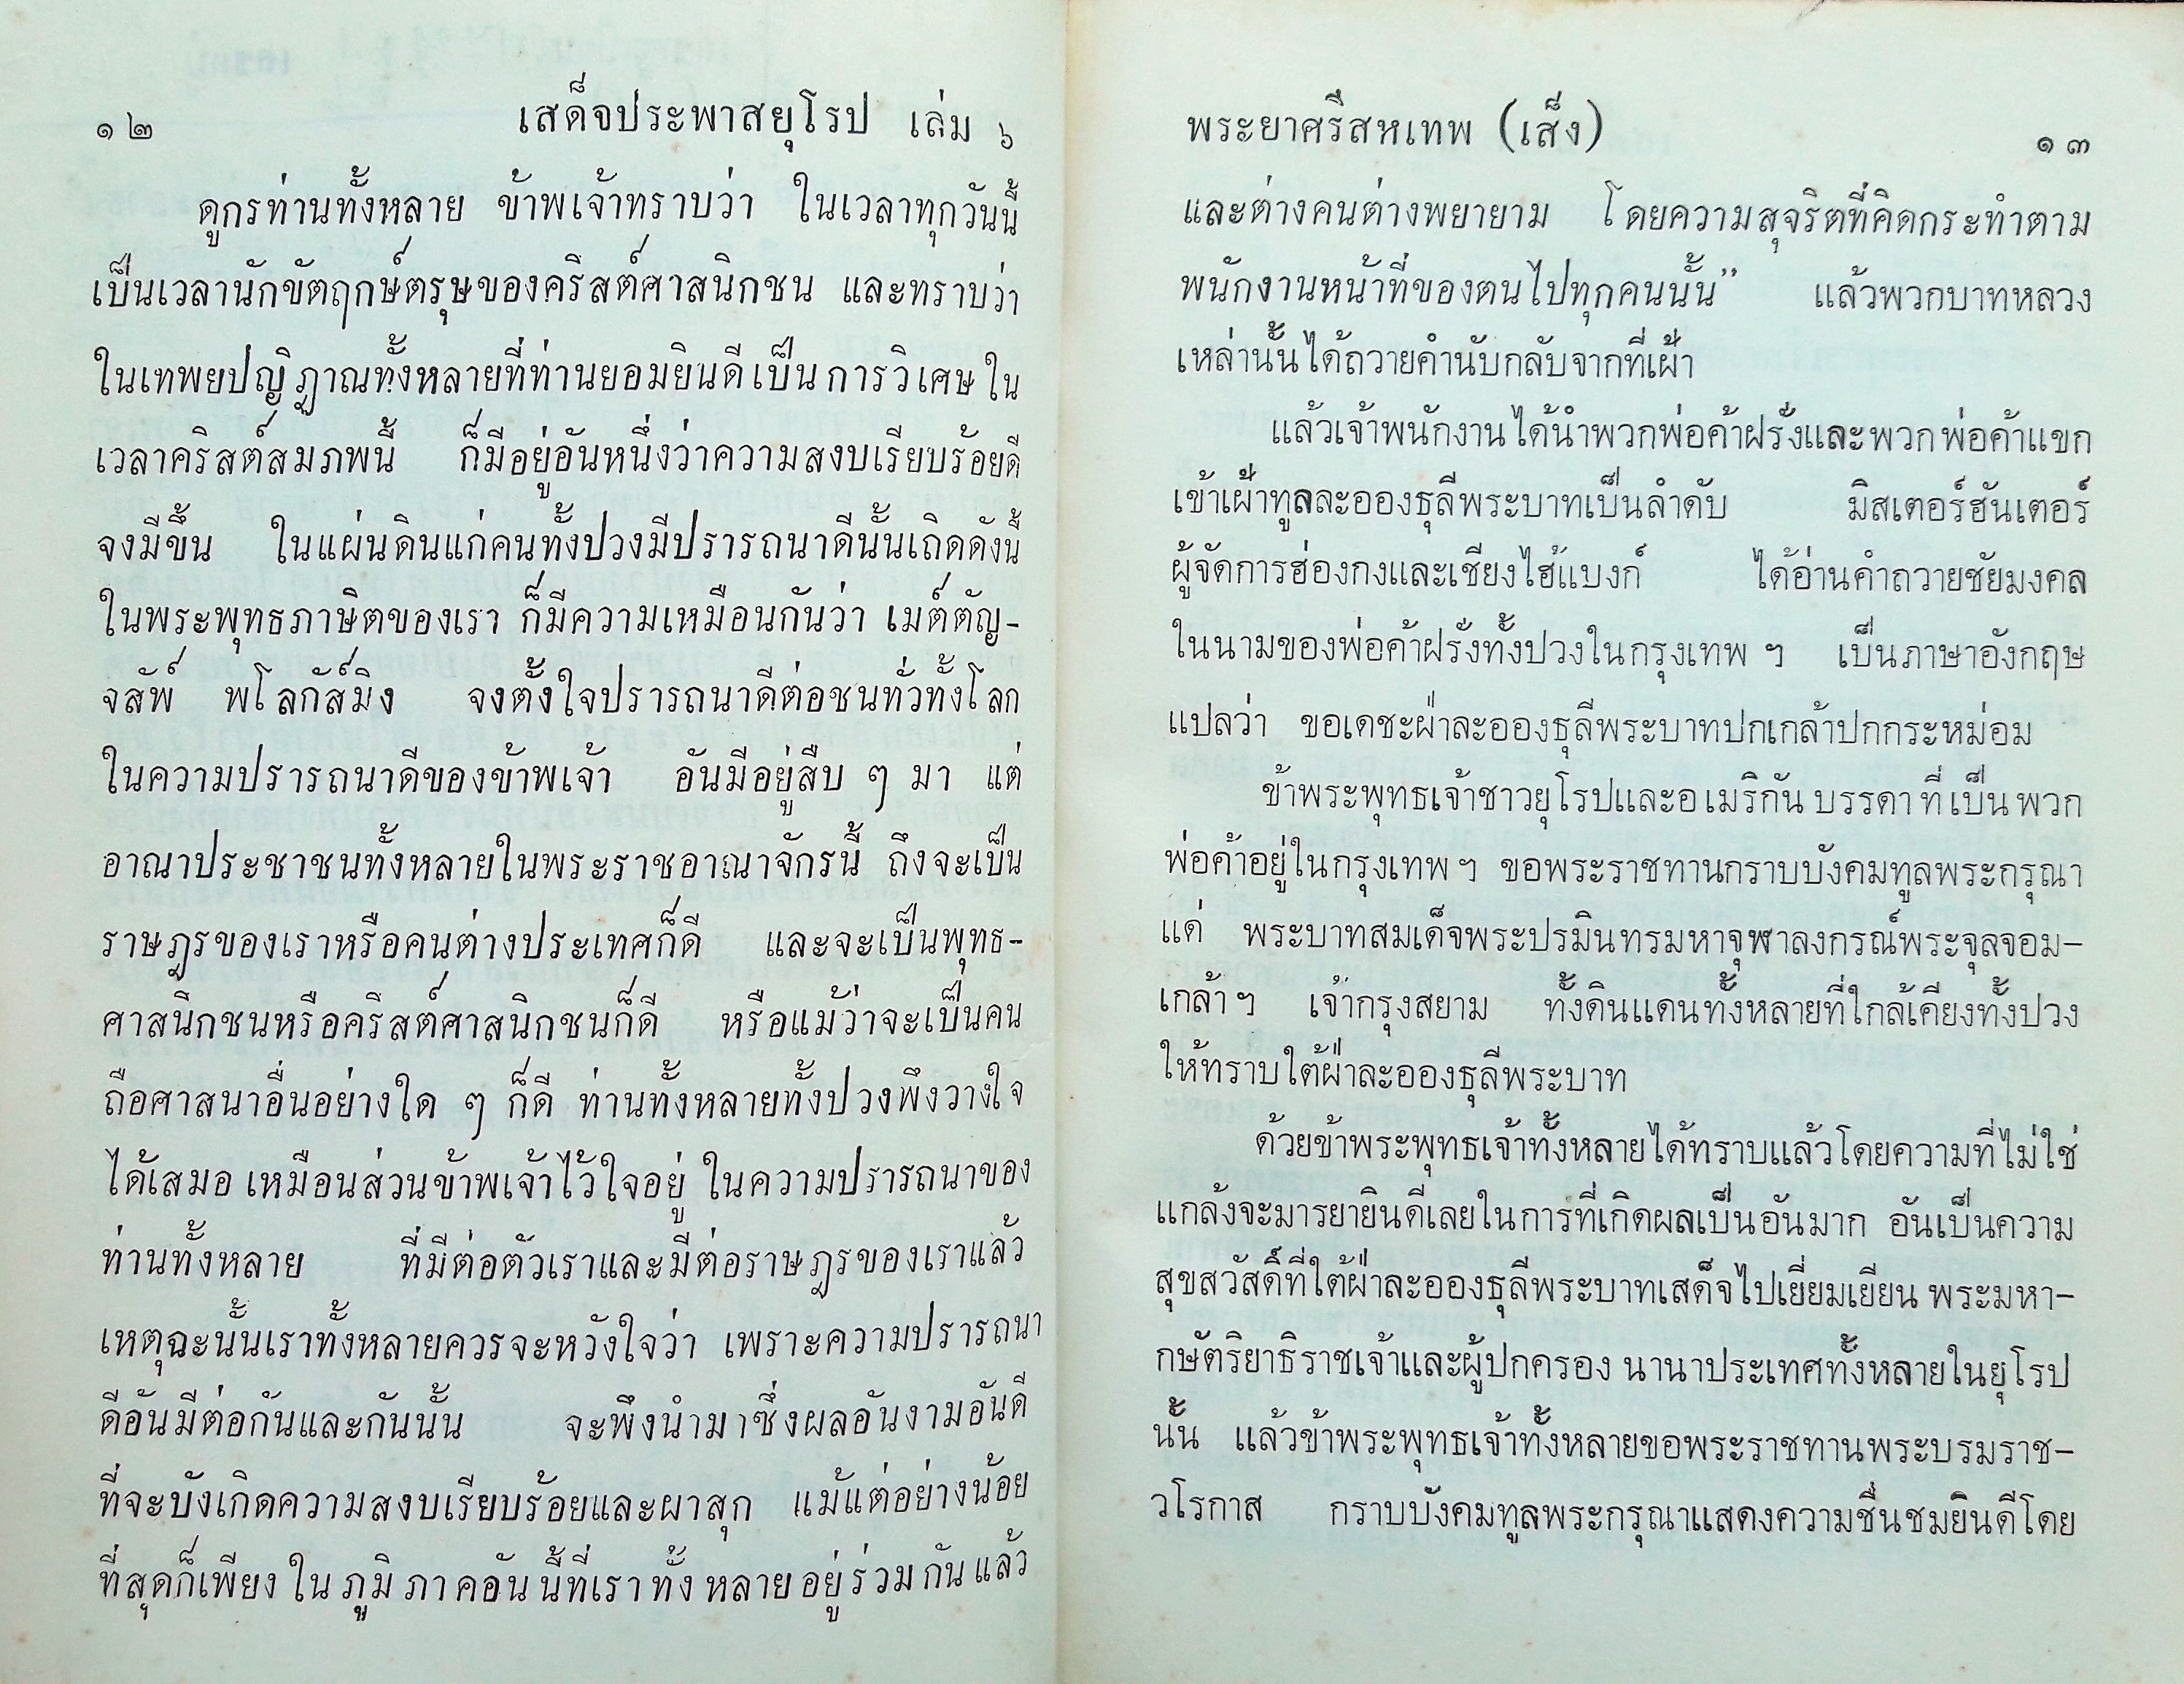 ๑๒ เสด็จประพาสยุโรป เล่ม ๖
ดูกรท่านทั้งหลาย ข้าพเจ้าทราบว่า ในเวลาทุกวันนี้
เป็นเวลานักขัตฤกษ์ตรุษของคริสต์ศาสนิกชน และทราบว่า
ในเทพยปญิฏาณทั้งหลายที่ท่านยอมยินดีเป็นการวิเศษใน
เวลาคริสต์สมภพนี้ ก็มีอยู่อันหนึ่งว่าความสงบเรียบร้อยดี
จงมีขึ้น ในแผ่นดินแก่คนทั้งปวงมีปรารถนาดีนั้นเถิดดังนี้
ในพระพุทธภาษิตของเรา ก็มีความเหมือนกันว่า เมต์ตัญ-
จสัพ์ พโลกัส์มิง จงตั้งใจปรารถนาดีต่อชนทั่วทั้งโลก
ในความปรารถนาดีของข้าพเจ้า อันมีอยู่สืบ ๆ มา แต่
อาณาประชาชนทั้งหลายในพระราชอาณาจักรนี้ ถึงจะเป็น
ราษฎรของเราหรือคนต่างประเทศก็ดี และจะเป็นพุทธ-
ศาสนิกชนหรือคริสต์ศาสนิกชนก็ดี หรือแม้ว่าจะเป็นคน
ถือศาสนาอื่นอย่างใด ๆ ก็ดี ท่านทั้งหลายทั้งปวงพึงวางใจ
ได้เสมอ เหมือนส่วนข้าพเจ้าไว้ใจอยู่ ในความปรารถนาของ
ท่านทั้งหลาย ที่มีต่อตัวเราและมีต่อราษฎรของเราแล้ว
เหตุฉะนั้นเราทั้งหลายควรจะหวังใจว่า เพราะความปรารถนา
ดีอันมีต่อกันและกันนั้น จะพึงนำมาซึ่งผลอันงามอันดี
ที่จะบังเกิดความสงบเรียบร้อยและผาสุก แม้แต่อย่างน้อย
ที่สุดก็เพียงในภูมิภาคอันนี้ที่เราทั้งหลายอยู่ร่วมกันแล้ว
พระยาศรีสหเทพ (เส็ง) ๑๓
และต่างคนต่างพยายาม โดยความสุจริตที่คิดกระทำตาม
พนักงานหน้าที่ของตนไปทุกคนนั้น” แล้วพวกบาทหลวง
เหล่านั้นได้ถวายคำนับกลับจากที่เฝ้า
แล้วเจ้าพนักงานได้นำพวกพ่อค้าฝรั่งและพวกพ่อค้าแขก
เข้าเฝ้าทูลละอองธุลีพระบาทเป็นลำดับ มิสเตอร์ฮันเตอร์
ผู้จัดการฮ่องกงและเชียงไฮ้แบงก์ ได้อ่านคำถวายชัยมงคล
ในนามของพ่อค้าฝรั่งทั้งปวงในกรุงเทพ ฯ เป็นภาษาอังกฤษ
แปลว่า ขอเดชะฝ่าละอองธุลีพระบาทปกเกล้าปกกระหม่อม
ข้าพระพุทธเจ้าชาวยุโรปและอเมริกัน บรรดาที่เป็นพวก
พ่อค้าอยู่ในกรุงเทพ ฯ ขอพระราชทานกราบบังคมทูลพระกรุณา
แด่ พระบาทสมเด็จพระปรมินทรมหาจุฬาลงกรณ์พระจุลจอม-
เกล้า ฯ เจ้ากรุงสยาม ทั้งดินแดนทั้งหลายที่ใกล้เคียงทั้งปวง
ให้ทราบใต้ฝ่าละอองธุลีพระบาท
ด้วยข้าพระพุทธเจ้าทั้งหลายได้ทราบแล้วโดยความที่ไม่ใช่
แกล้งจะมารยายินดีเลยในการที่เกิดผลเป็นอันมาก อันเป็นความ
สุขสวัสดิ์ที่ใต้ฝ่าละอองธุลีพระบาทเสด็จไปเยี่ยมเยียน พระมหา-
กษัตริยาธิราชเจ้าและผู้ปกครอง นานาประเทศทั้งหลายในยุโรป
นั้น แล้วข้าพระพุทธเจ้าทั้งหลายขอพระราชทานพระบรมราช-
วโรกาส กราบบังคมทูลพระกรุณาแสดงความชื่นชมยินดีโดย